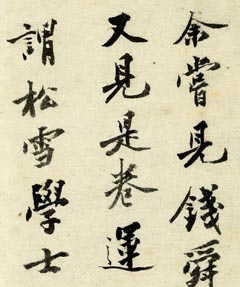 余嘗見錢舜
又見是卷運
謂松雪學士